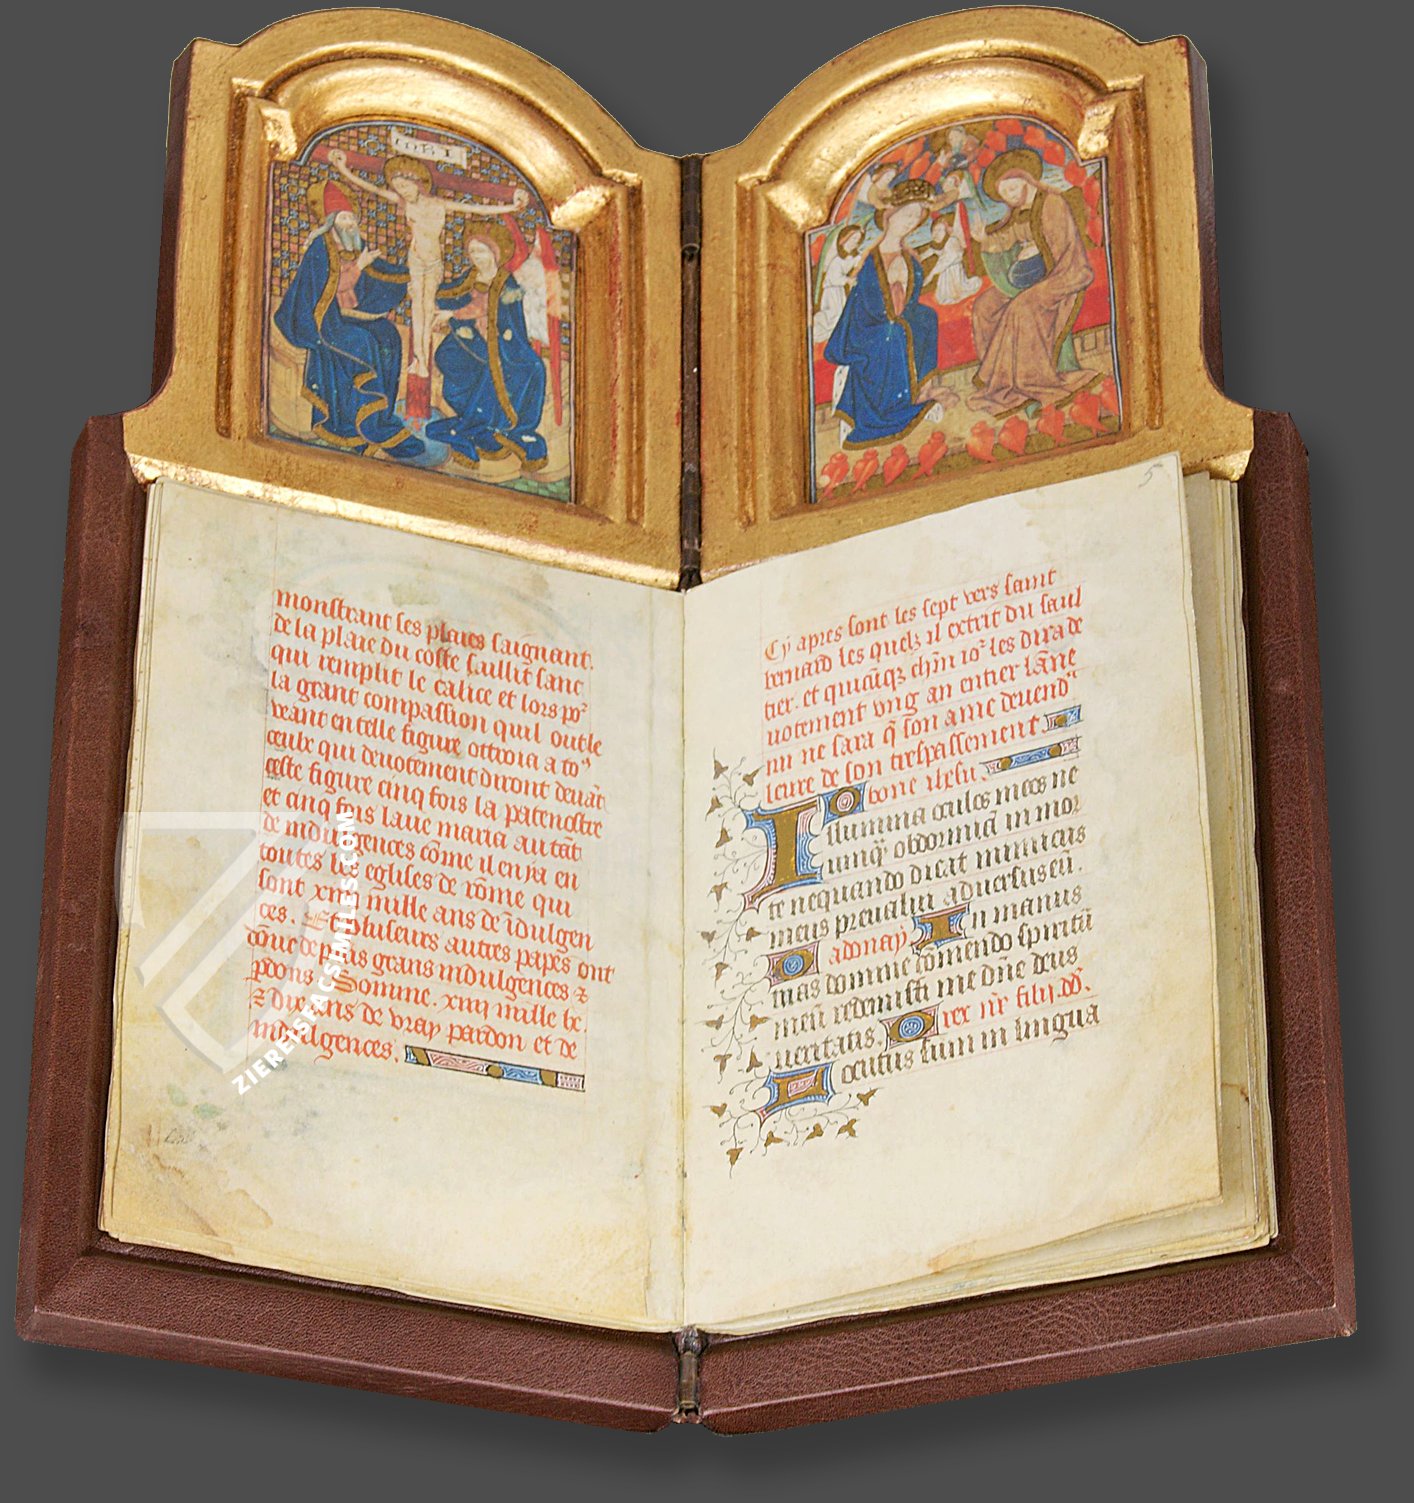 monstrant ses plaies saignant.
de la plaie du coste saillit sanc
qui remplit le calice et lors po²
la grant compassion quil oultle
veant en telle figure ottroia a to⁹
ceulx qui devotement diront devāt
ceste figure cinq fois la patenostre
et cinq fois lave maria autāt
de indulgences cōme il en ya en
toutes les eglises de rōme qui
sont mille ans de īdulgen
ces. Et pluseurs autres papes ont
grans indulgences ⁊
pdons Somme. xiiij mille
ans de vray pardon et de
indulgences.
5
Cy apres sont les sept vers saint
bernard les quelz il extrit du saul
tier. et quicūqȝ chm̄ io² les dira de
votement ung an entier
nu ne sara q̄ son ame devend
leure de son trespassement
O bone ihesu.
Illumina oculos meos ne
unqȝ obdormia in mor
te nequando dicat inimicus
meus prevalui adversus eū.
O adonay In manus
tuas domine cōmendo spiritū
meū redemisti me dn̄e deus
veritatis. O rex nr̄
Locutus sum in lingua
ZIEREIS FACSIMILES.COM